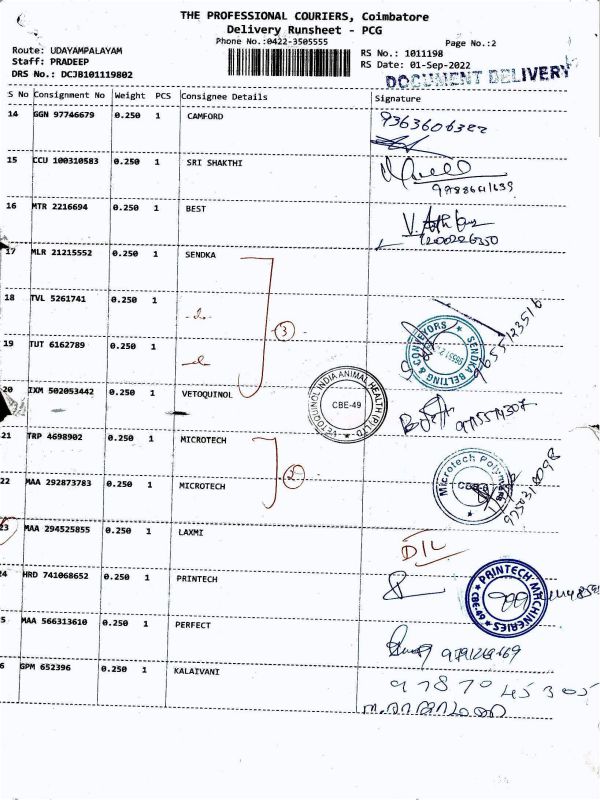 THE PROFESSIONAL COURIERS, Coimbatore
Delivery Runsheet - PCG
Phone No.:0422-3505555
Page No.:2
Route: UDAYAMPALAYAM
RS No.: 1011198
Staff: PRADEEP
RS Date: 01-Sep-2022
DRS No.: DCJB101119802
DOCUMENT DELIVERY
S No Consignment No Weight PCS Consignee Details Signature
14 GGN 97746679 0.250 1 CAMFORD 9363606322
15 CCU 100310583 0.250 1 SRI SHAKTHI
16 MTR 2216694 0.250 1 BEST
1200226350
17 MLR 21215552 0.250 1 SENDKA
18 TVL 5261741 0.250 1
3
19 TUT 6162789 0.250 1
SENDKA BELTING & CONVEYORS
9655123516
20 IXM 502053442 0.250 1 VETOQUINOL
VETOQUINOL INDIA ANIMAL HEALTH (P) LTD
CBE-49
21 TRP 4698902 0.250 1 MICROTECH
2
22 MAA 292873783 0.250 1 MICROTECH
Microtech Polymers
23 MAA 294525855 0.250 1 LAXMI DIL
24 HRD 741068652 0.250 1 PRINTECH
PRINTECH MACHINERIES
CBE-49
5 MAA 566313610 0.250 1 PERFECT
6 GPM 652396 0.250 1 KALAIVANI 97870 45305